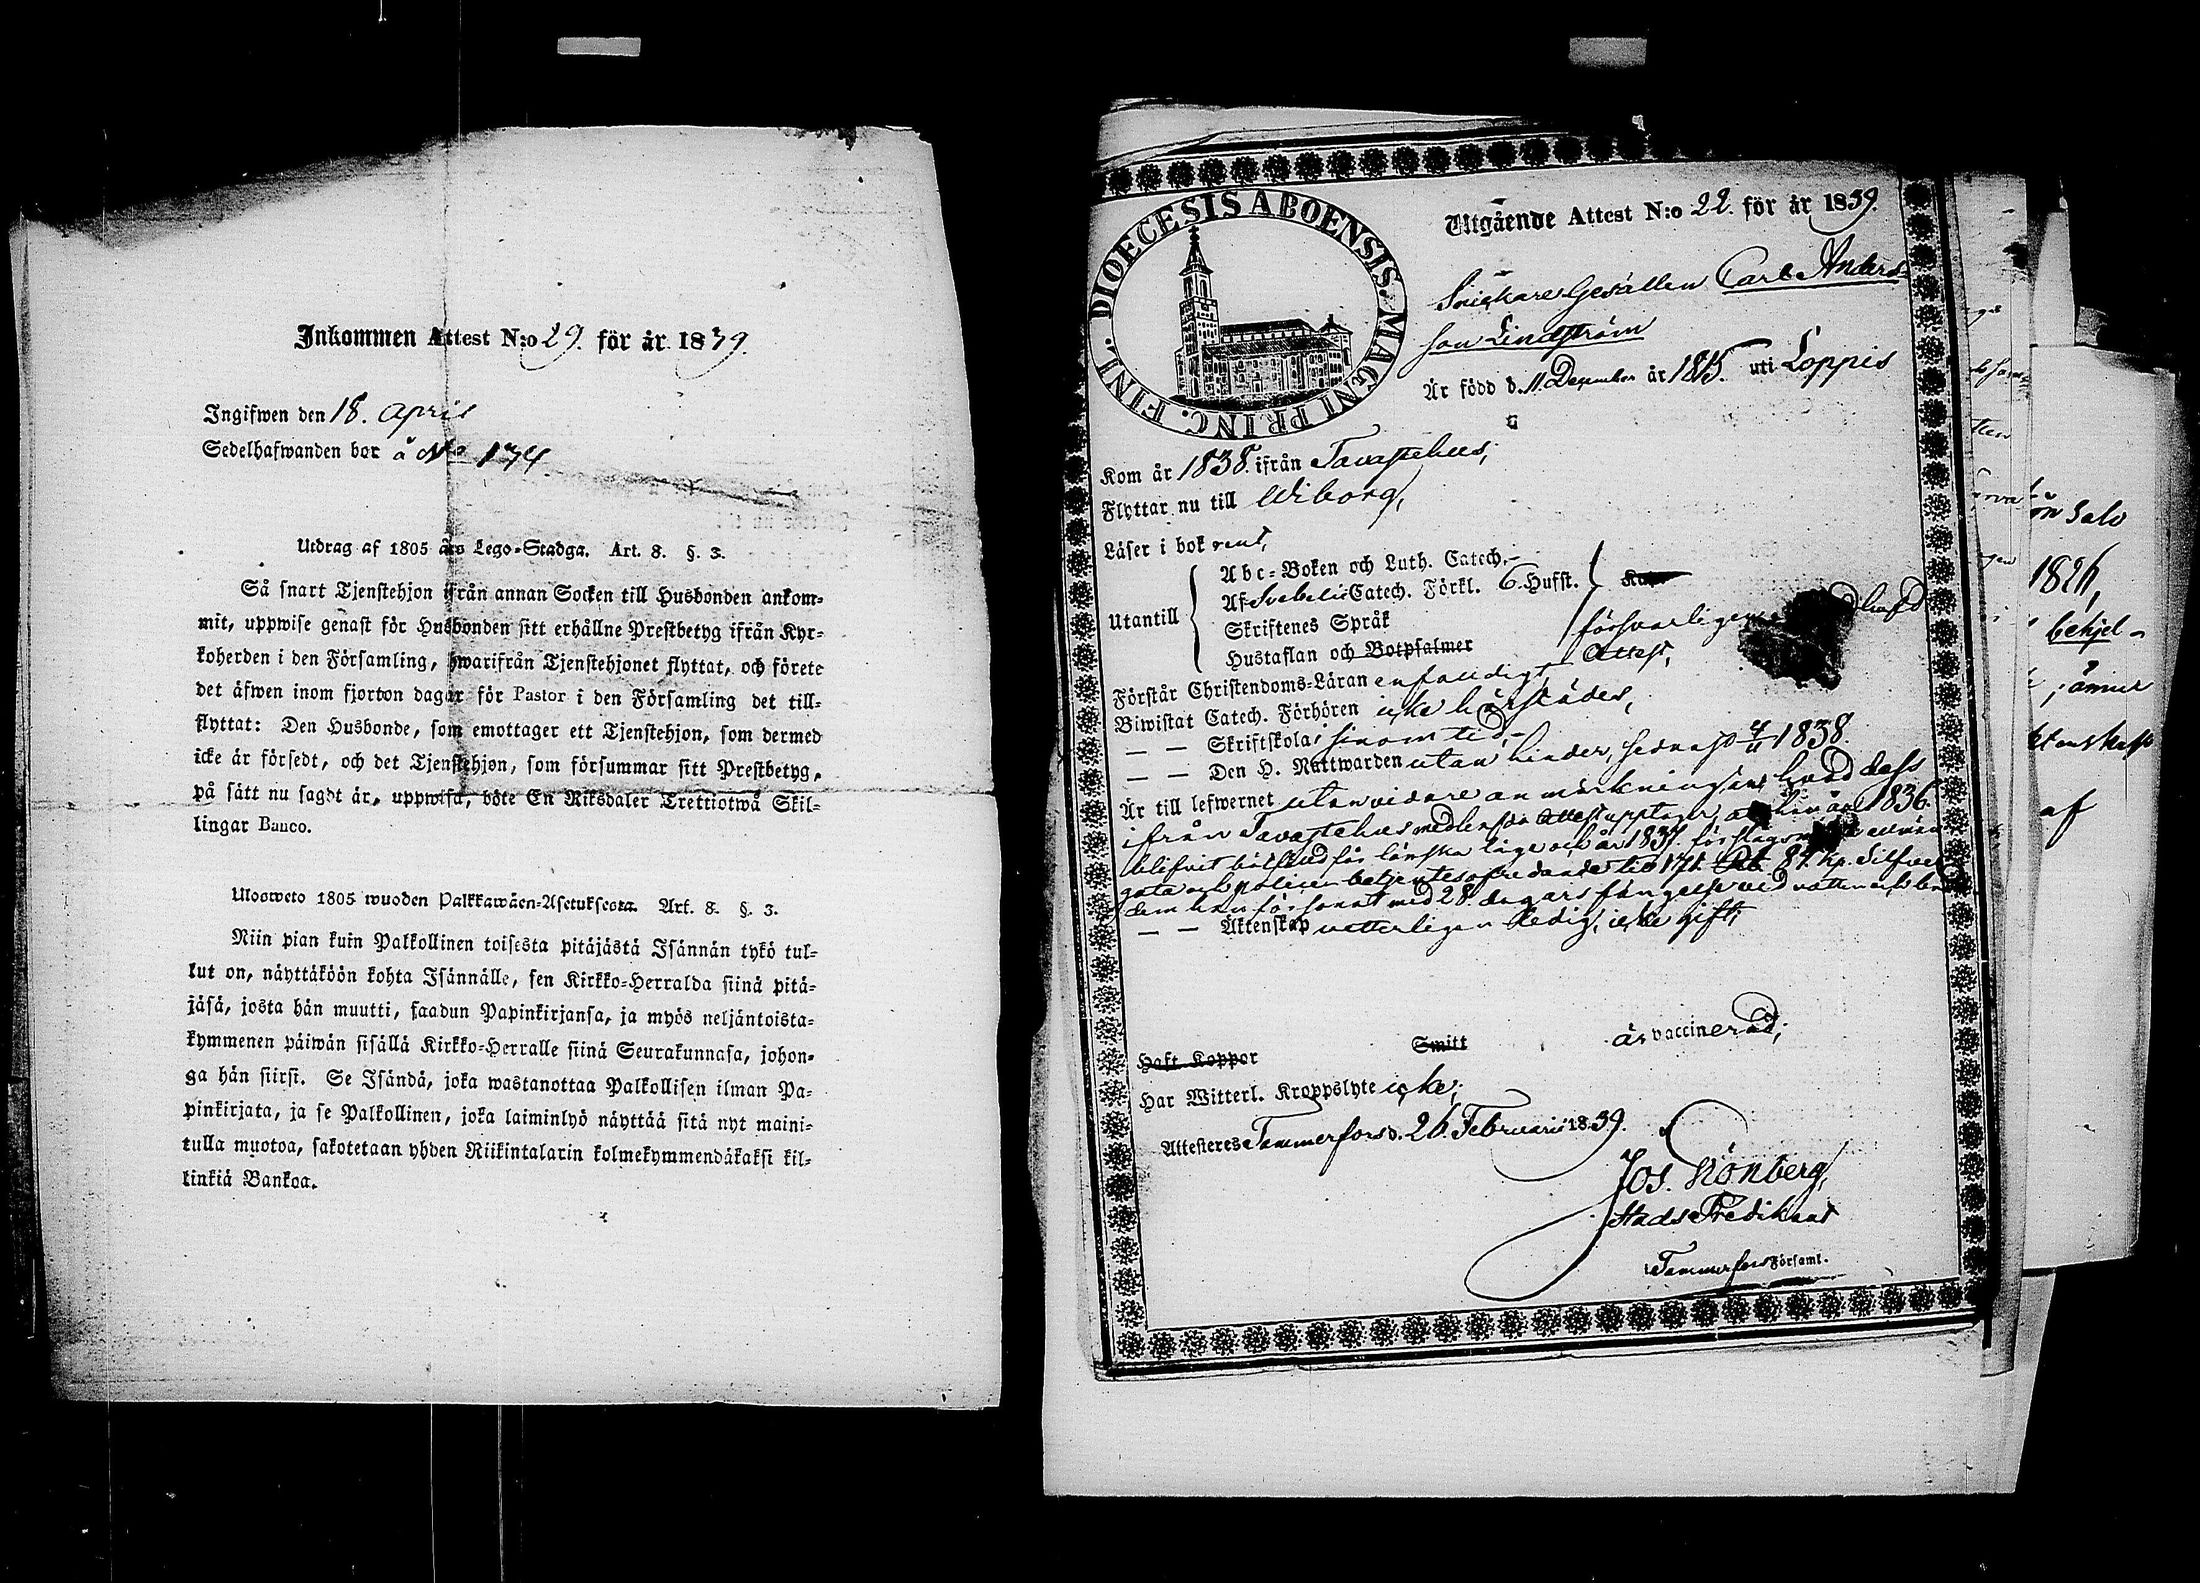 Inkommen Attest N:o 29. för år 1839.
Ingifwen den 18. April
Sedelhafwanden bor å No 174
Utdrag af 1805 års Lego-Stadga. Art. 8. §. 3.
Så snart Tjenstehjon ifrån annan Socken till Husbonden ankom-
mit, uppwise genast för Husbonden sitt erhållne Prestbetyg ifrån Kyr-
koherden i den Församling, hwarifrån Tjenstehjonet flyttat, och förete
det äfwen inom fjorton dagar för Pastor i den Församling det till-
flyttat: Den Husbonde, som emottager ett Tjenstehjon, som dermed
icke är försedt, och det Tjenstehjon, som försummar sitt Prestbetyg,
på sätt nu sagdt är, uppwisa, böte En Riksdaler Trettiotwå Skil-
lingar Banco.
Ulosweto 1805 wuoden Palkkawäen-Asetuksesta. Art. 8. §. 3.
Niin pian kuin Palkollinen toisesta pitäjästä Isännän tykö tul-
lut on, näyttäköön kohta Isännälle, sen Kirkko-Herralda siinä pitä-
jäsä, josta hän muutti, saadun Papinkirjansa, ja myös neljäntoista-
kymmenen päiwän sisällä Kirkko-Herralle siinä Seurakunnasa, johon-
ga hän siirsi. Se Isändä, joka wastanottaa Palkollisen ilman Pa-
pinkirjata, ja se Palkollinen, joka laiminlyö näyttää sitä nyt maini-
tulla muotoa, sakotetaan yhden Riikintalarin kolmekymmendäkaksi kil-
linkiä Bankoa.
DIOECESIS ABOENSIS. MAGNI PRINC. FINL.
Utgående Attest N:o 22. för år 1839.
Snickare Gesällen Carl Anders-
son Lindström
Är född d. 11 December år 1815. uti Loppis
Kom år 1838. ifrån Tavastehus,
Flyttar nu till Wiborg,
Läser i bok rent,
Utantill
Abc-Boken och Luth. Catech.
Af Svebelii Catech. Förkl. 6. Hufst.
Skriftenes Språk
Hustaflan och Botpsalmer
försvarligen
Attest,
Förstår Christendoms-Läran enfaldigt,
Biwistat Catech. Förhören icke härstädes,
— — Skriftskolas sinom tid,
— — Den H. Nattwarden utan hinder, sednast 4/11 1838.
Är till lefwernet utan vidare anmärkning, än hvad dess
ifrån Tavastehus medhafda Attest upptager, at han år 1836.
blifvit bötfäld för lönska läge och år 1837. för slagsmål
gata och polisen betjentes ofredande till 171. Rub. 87. kp. Silfver
dem han försonat med 28. dagars fängelse vid vatten och bröd
— — Äktenskap vetterligen ledig, icke gift,
Haft Koppor Smitt är vaccinerad;
Har Witterl. Kroppslyte icke;
Attesteres Tammerfors d. 26. Februarii 1839.
Jos. Grönberg,
Stads Predikant
Tammerfors Församl.
1826,
behjel-
af